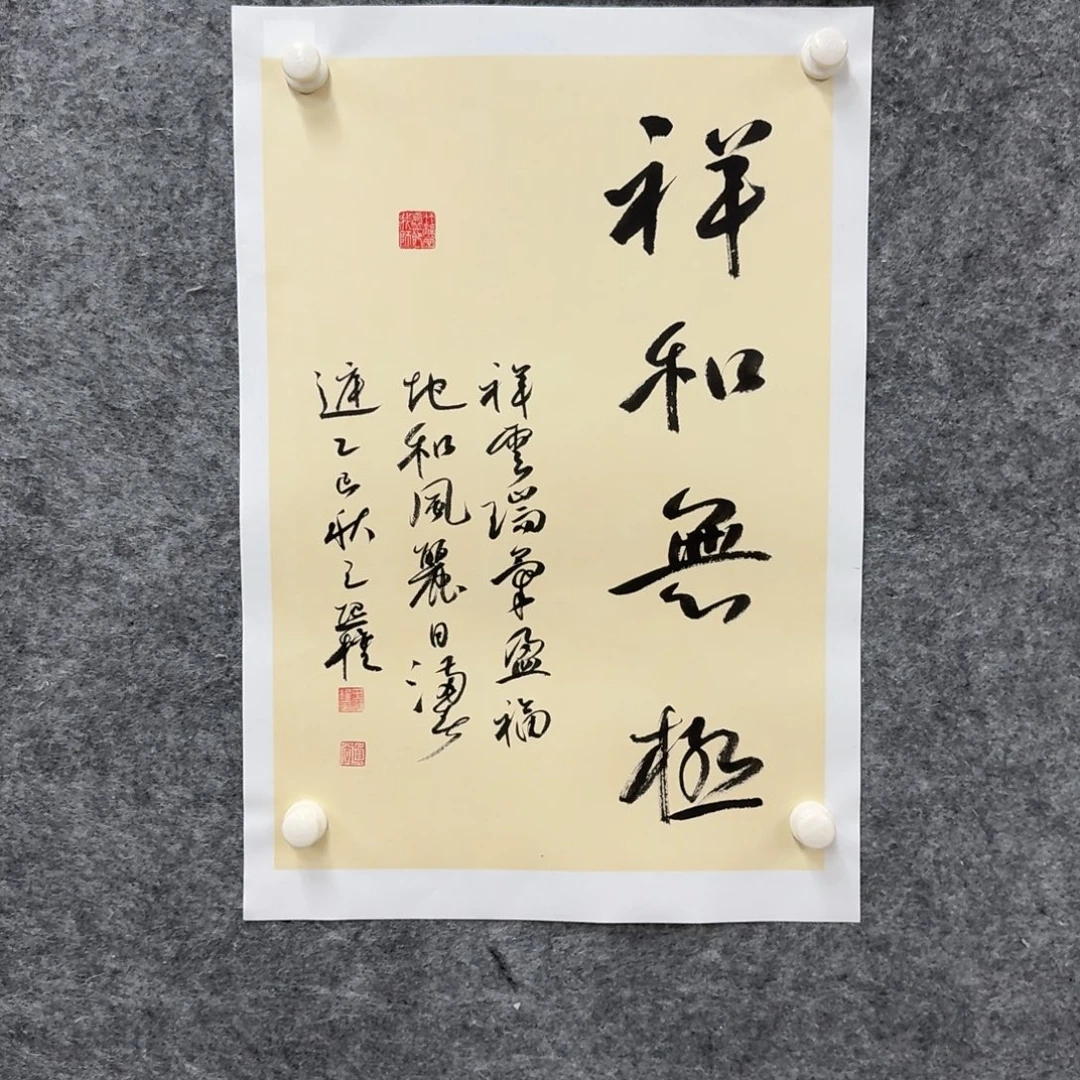 祥和無極
祥雲瑞氣盈福
地和風麗日滿春
庭乙巳秋